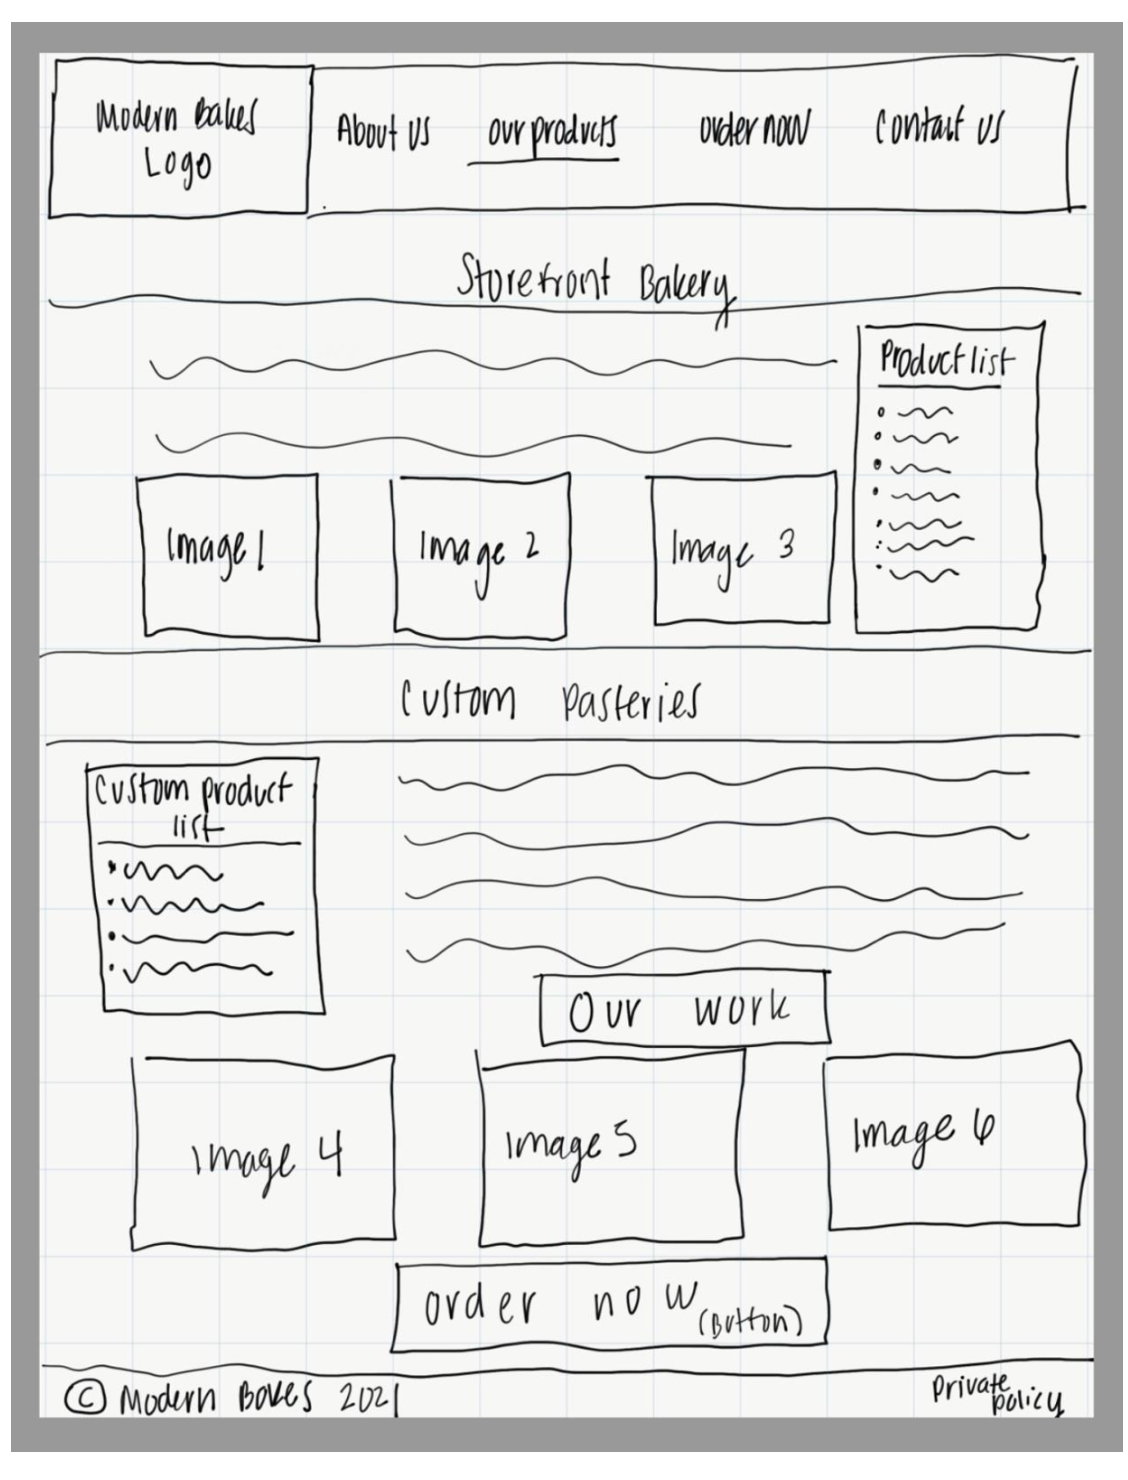 Modern Bakes
Logo
About us
our products
order now
Contact us
Storefront Bakery
Product list
Image 1
Image 2
Image 3
Custom Pasteries
Custom product
list
Our work
Image 4
Image 5
Image 6
order now
(Button)
© Modern Bakes 2021
Private
policy